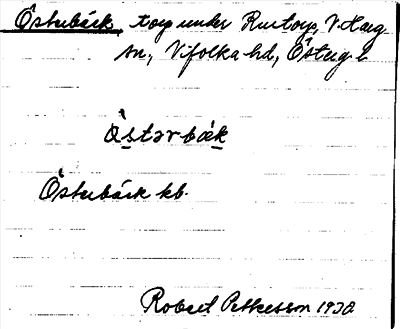 Östubäck, torp under Rustorp, V. Harg
sn, Vifolka hd, Östug l
Östərbäk
Östubäck kb.
Robert Pettersson 1930